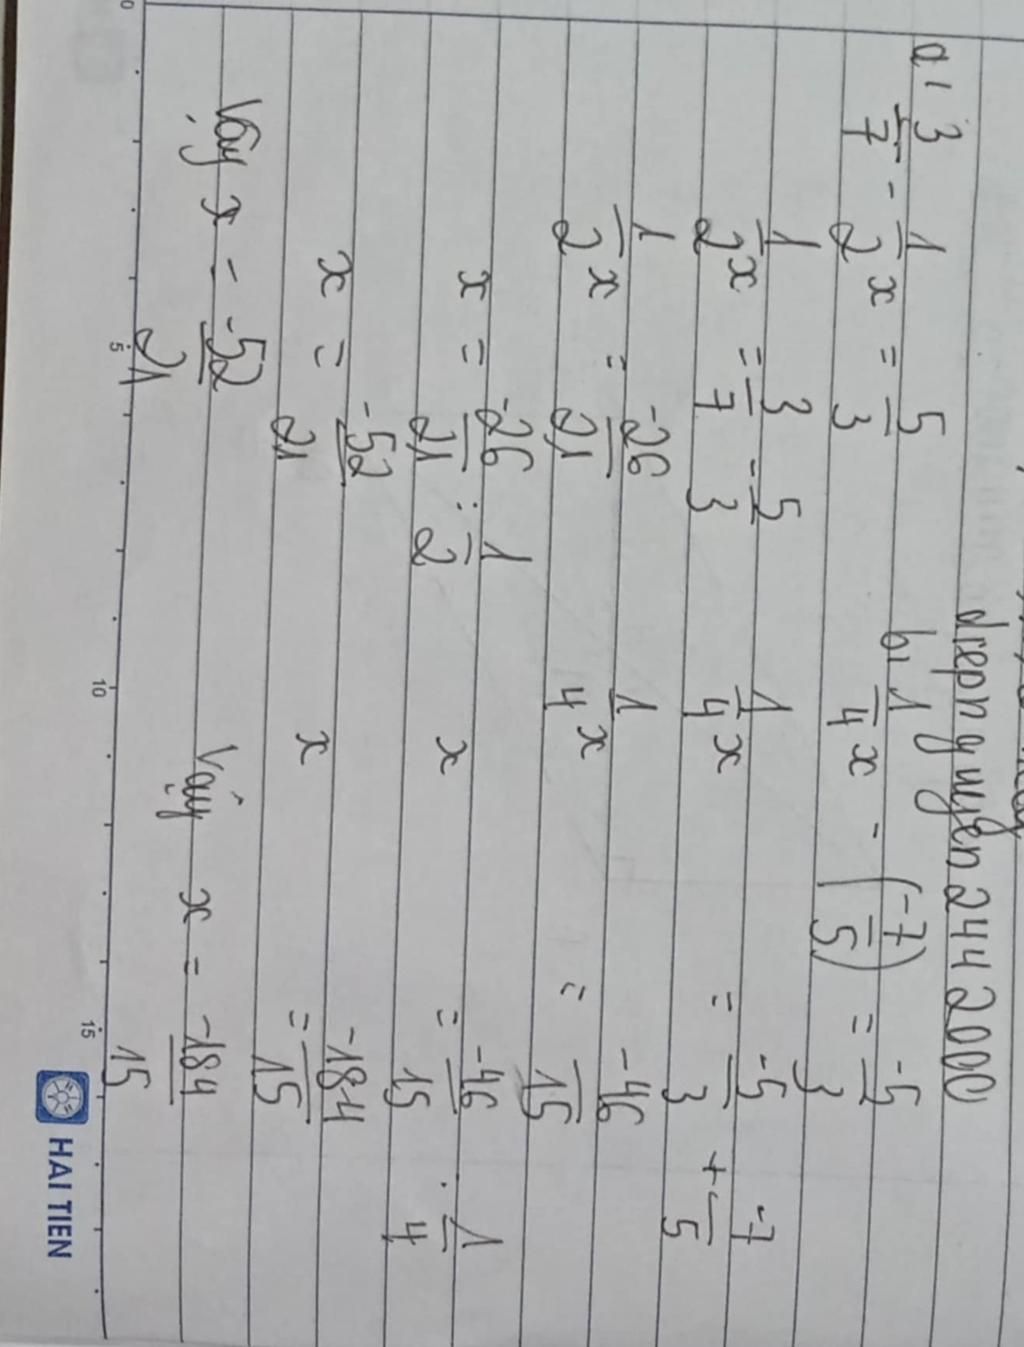 diepnguyen2442000
a) 3/7 - 1/2 x = 5/3
1/2 x = 3/7 - 5/3
1/2 x = -26/21
x = -26/21 : 1/2
x = -52/21
Vậy x = -52/21
b) 1/4 x - (-7/5) = -5/3
1/4 x = -5/3 + -7/5
1/4 x = -46/15
x = -46/15 : 1/4
x = -184/15
Vậy x = -184/15
0 5 10 15
HAI TIEN